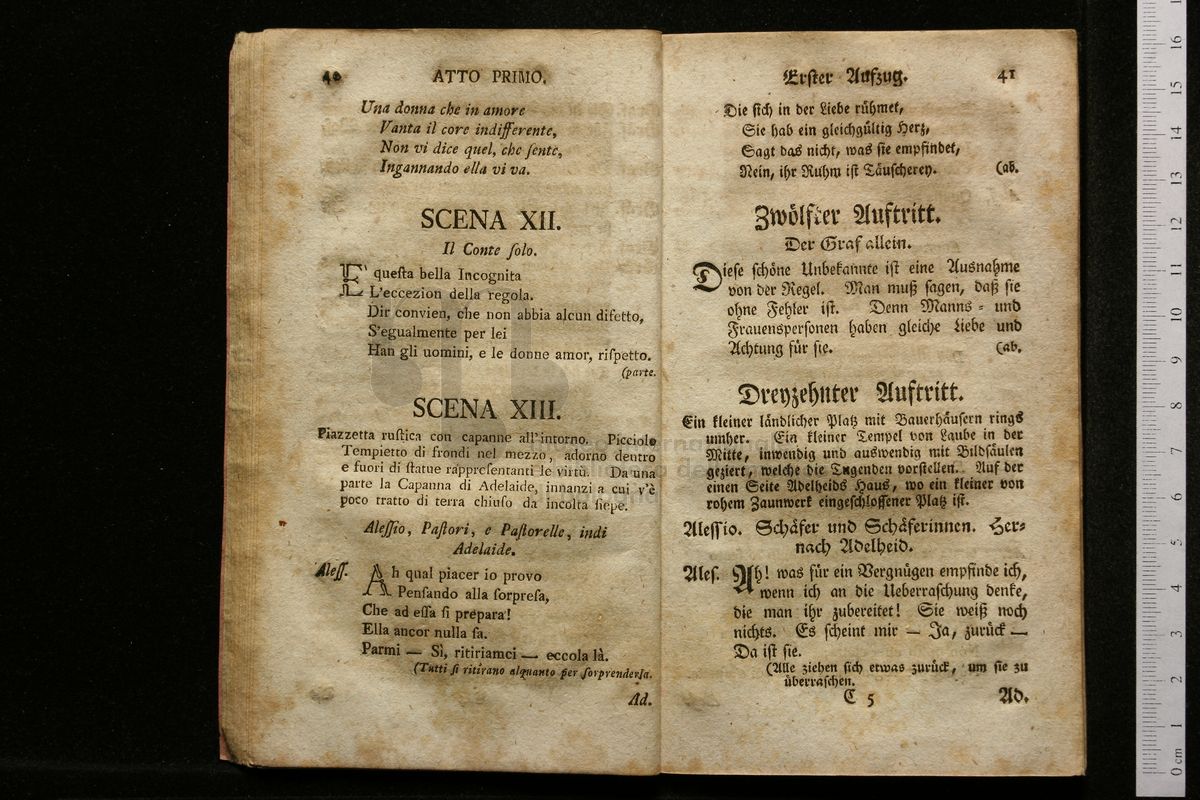 40 ATTO PRIMO.
Una donna che in amore
Vanta il core indifferente,
Non vi dice quel, che ſente,
Ingannando ella vi va.
SCENA XII.
Il Conte ſolo.
E' queſta bella Incognita
L'eccezion della regola.
Dir convien, che non abbia alcun difetto,
S'egualmente per lei
Han gli uomini, e le donne amor, riſpetto.
(parte.
SCENA XIII.
Piazzetta ruſtica con capanne all'intorno. Picciolo
Tempietto di frondi nel mezzo, adorno dentro
e fuori di ſtatue rappreſentanti le virtù. Da una
parte la Capanna di Adelaide, innanzi a cui v'è
poco tratto di terra chiuſo da incolta ſiepe.
Aleſſio, Paſtori, e Paſtorelle, indi
Adelaide.
Aleſſ. Ah qual piacer io provo
Penſando alla ſorpreſa,
Che ad eſſa ſi prepara!
Ella ancor nulla ſa.
Parmi — Sì, ritiriamci — eccola là.
(Tutti ſi ritirano alquanto per ſorprenderla.
Ad.
Erſter Aufzug. 41
Die ſich in der Liebe rühmet,
Sie hab ein gleichgültig Herz,
Sagt das nicht, was ſie empfindet,
Nein, ihr Ruhm iſt Täuſcherey. (ab.
Zwölfter Auftritt.
Der Graf allein.
Dieſe ſchöne Unbekannte iſt eine Ausnahme
von der Regel. Man muß ſagen, daß ſie
ohne Fehler iſt. Denn Manns- und
Frauensperſonen haben gleiche Liebe und
Achtung für ſie. (ab.
Dreyzehnter Auftritt.
Ein kleiner ländlicher Platz mit Bauerhäuſern rings
umher. Ein kleiner Tempel von Laube in der
Mitte, inwendig und auswendig mit Bildſäulen
geziert, welche die Tugenden vorſtellen. Auf der
einen Seite Adelheids Haus, wo ein kleiner von
rohem Zaunwerk eingeſchloſſener Platz iſt.
Aleſſio. Schäfer und Schäferinnen. Her-
nach Adelheid.
Aleſ. Ah! was für ein Vergnügen empfinde ich,
wenn ich an die Ueberraſchung denke,
die man ihr zubereitet! Sie weiß noch
nichts. Es ſcheint mir — Ja, zurück —
Da iſt ſie.
(Alle ziehen ſich etwas zurück, um ſie zu
überraſchen.
C 5 Ad.
0 cm 1 2 3 4 5 6 7 8 9 10 11 12 13 14 15 16